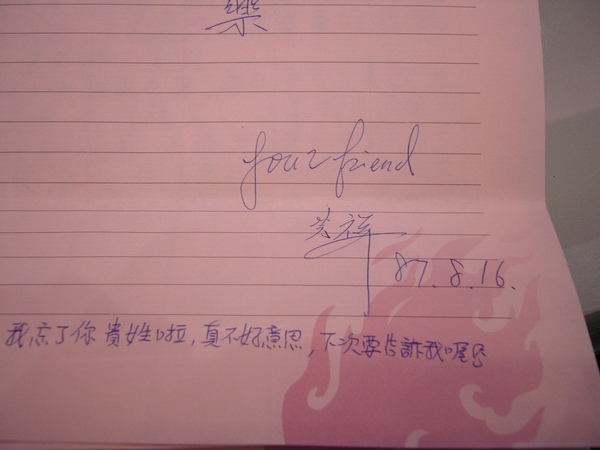 樂
your friend
87.8.16.
我忘了你貴姓啦,真不好意思,下次要告訴我喔